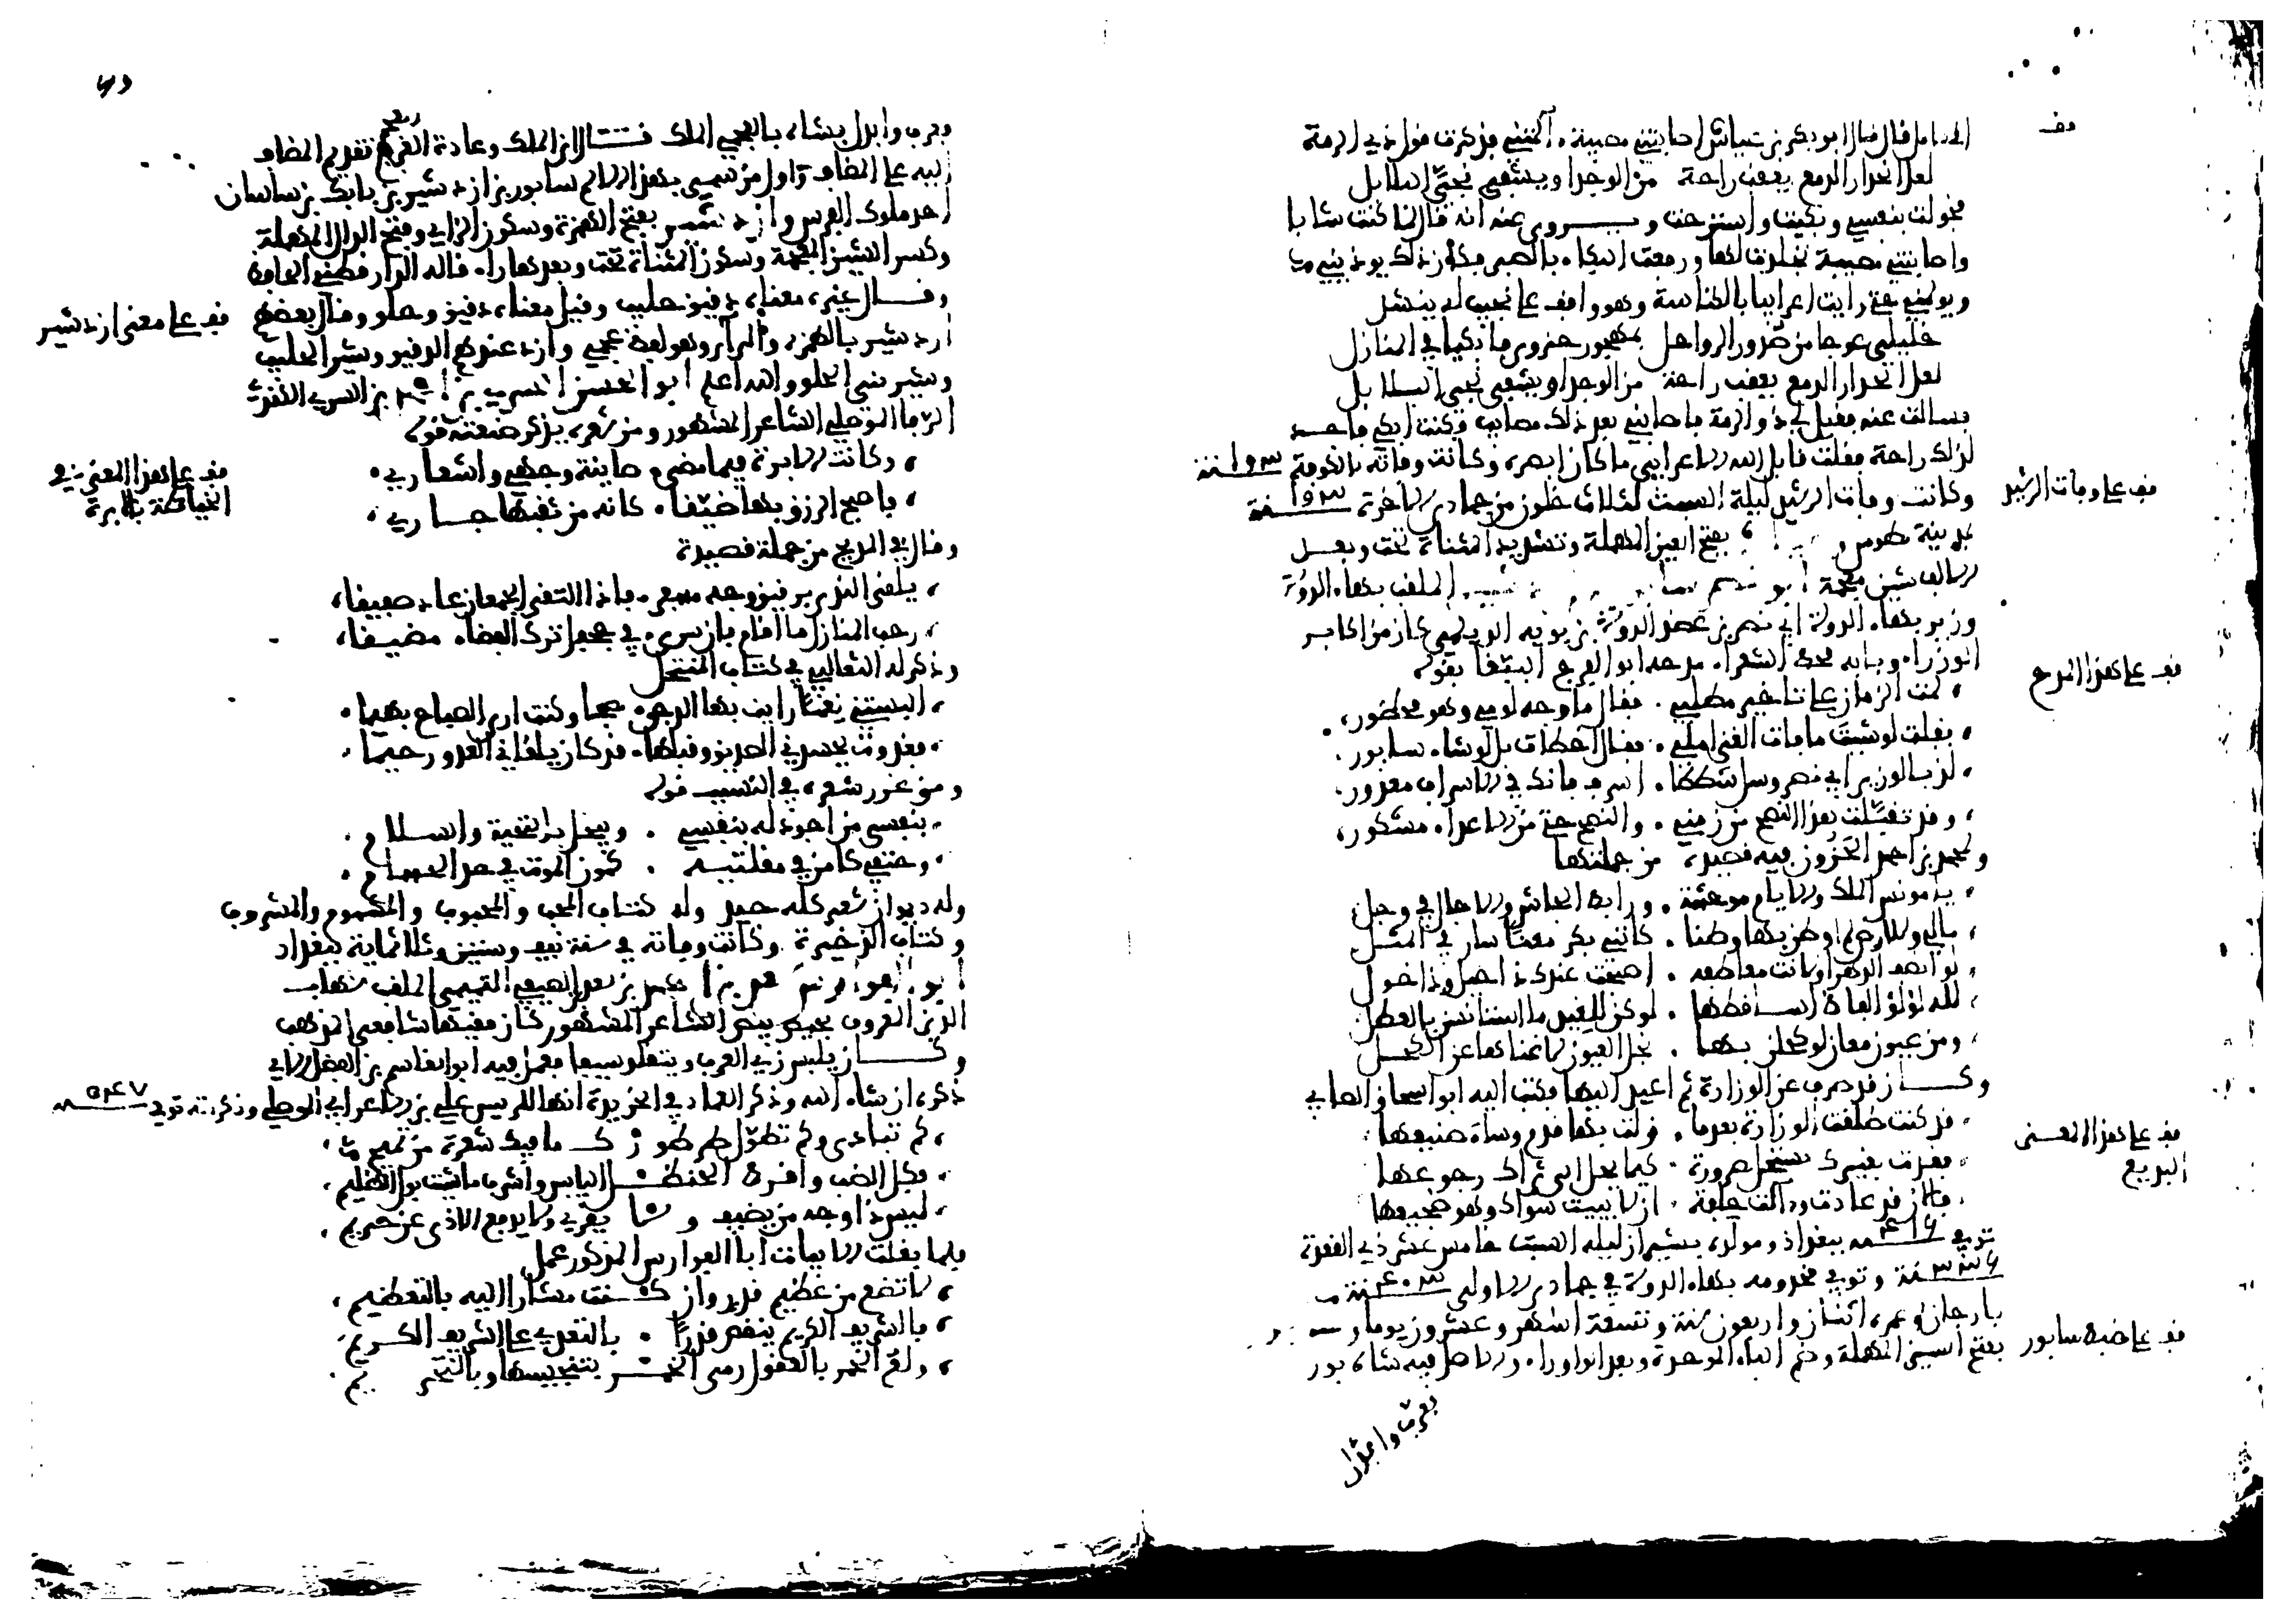 الكامل قال قال ابو بكر بن عياش اصابتني مصيبة المتني فذكرت قول ذي الرمة
لعل انحدار الدمع يعقب راحة من الوجد او يشفي نجي البلابل
فخلوت بنفسي وبكيت واسترحت ويروى عنه انه قال لما كنت شابا
واصابتني مصيبة تجلدت لها ودفعت البكاء بالصبر فكان ذلك يوذيني
ويولمني حتى رايت اعرابيا بالكناسة وهو واقف على نجيب له ينشد
خليلي عوجا من صدور الرواحل بمهجور حزوى فابكيا في المنازل
لعل انحدار الدمع يعقب راحة من الوجد او يشفي نجي البلابل
فسالت عنه فقيل لي ذو الرمة فاصابني بعد ذلك مصايب فكنت ابكي فاجد
لذلك راحة فقلت قاتل الله الاعرابي ما كان ابصره وكانت وفاته بالكوفة ١٩٣ سنة
وكانت وفات الرشيد ليلة السبت لثلاث خلون من جمادى الاخرة ١٩٣ سنة
بمدينة طوس و بفتح العين المهملة وتشديد المثناة تحت وبعد
الالف شين معجمة ابو نصر الملقب بهاء الدولة
وزير بهاء الدولة ابي نصر بن عضد الدولة بن بويه الديلمي كان من اكابر
الوزراء وبابه محط الشعراء مدحه ابو الفرج الببغا بقوله
لمت الزمان على تاخير مطلبي فقال ما وجه لومي وهو محظور
فقلت لو شيت ما فات الغنى املي فقال اخطات بل لو شاء سابور
لذ بالوزير ابي نصر وسل شططا اسرف فانك في الاسراف معذور
وقد تقبلت هذا النصح من زمني والنصح حتى من الاعداء مشكور
ولمحمد بن احمد الحرون فيه قصيدة من جملتها
يا مونس الملك والايام موحشة ورابط الجاش والاجال في وجل
مالي وللارض لم اوطن بها وطنا كانني بكر معنى سار في المثل
لو انصف الدهر او لانت معاطفه اصبحت عندك ذا خيل وذا خول
لله لؤلؤ الفاظ اساقطها لو كن للغيد ما استانسن بالعطل
ومن عيون معان لو كحلن بها نجل العيون لاغناها عن الكحل
وكان قد صرف عن الوزارة ثم اعيد اليها فكتب اليه ابو اسحاق الصابي
قد كنت طلقت الوزارة بعدما زلت بها قدم وساء صنيعها
فغدت بغيرك تستحل ضرورة كيما يحل الى ثراك رجوعها
فالان قد عادت والت حلفة ان لا يبيت سواك وهو ضجيعها
توفي ٤١٦ سنة ببغداذ ومولده بشيراز ليلة السبت خامس عشر ذي القعدة
٣٣٦ سنة وتوفي مخدومه بهاء الدولة في جمادى الاولى ٤٠٣ سنة
بارجان وعمره اثنان واربعون سنة وتسعة اشهر وعشرون يوما و
بفتح السين المهملة وضم الباء الموحدة وبعد الواو راء والاصل فيه شاه بور
فعرب وابدل
قف
قف على وفات الرشيد
قف على هذا المدح
قف على هذا المعنى
البديع
قف على ضبط سابور
فعرب وابدل بشاه بالعجمي الملك فتقال ابن الملك وعادة الفرس تقديم المضاف
اليه على المضاف واول من سمي بهذا الاسم سابور بن ازدشير بن بابك بن ساسان
احد ملوك الفرس وازدشير بفتح الهمزة وسكون الزاي وفتح الدال المهملة
وكسر الشين المعجمة وسكون المثناة تحت وبعدها راء قاله الدارقطني الحافظ
وقال غيره معناه دقيق حليب وقيل معناه دقيق وحلو وقال بعضهم
اردشير بالهمزة والراء وهو لفظ عجمي وازد عندهم الدقيق وشير الحليب
وشيرين الحلو والله اعلم ابو الحسن السري بن احمد بن السري الكندي
الرفا الموصلي الشاعر المشهور ومن شعره يذكر صنعته قوله
وكانت الابرة فيما مضى صاينة وجهي واشعاري
فاصبح الرزق بها ضيقا كانه من ثقبها جاري
وقال في المديح من جملة قصيدة
يلقى الندى برقيق وجه مسفر فاذا التقى الجمعان عاد صفيقا
رحب المنازل ما اقام فان سرى في جحفل ترك الفضاء مضيقا
وذكر له الثعالبي في كتاب المنتحل
البستني نعما رايت بها الدجى صبحا وكنت ارى الصباح بهيما
فغدوت يحسدني الصديق وقبلها قد كان يلقاني العدو رحيما
ومن غرر شعره في النسيب قوله
بنفسي من اجود له بنفسي ويبخل بالتحية والسلام
وحتفي كامن في مقلتيه كمون الموت في حد الحسام
وله ديوان شعر كله جيد وله كتاب المحب والمحبوب والمشموم والمشروب
وكتاب الذخيرة وكانت وفاته في سنة نيف وستين وثلاثماية ببغداد
ابو الفوارس سعد بن محمد بن سعد بن الصيفي التميمي الملقب شهاب
الدين المعروف بحيص بيص الشاعر المشهور كان فقيها شافعي المذهب
وكان يلبس زي العرب ويتقلد سيفا فعمل فيه ابو القاسم بن الفضل الاتي
ذكره ان شاء الله وذكر العماد في الخريدة انها للرييس علي بن الاعرابي الموصلي وذكر انه توفي ٥٤٧ سنة
كم تبادى وكم تطول طرطورك ما فيك شعرة من تميم
فكل الضب واقرط الحنظل اليابس واشرب ما شيت بول الظليم
ليس ذا وجه من يضيف ولا يقري ولا يدفع الاذى عن حريم
فلما بلغت الابيات ابا الفوارس المذكور عمل
لا تضع من عظيم قدر وان كنت مشارا اليه بالتعظيم
فالشريف الكريم ينقص قدرا بالتعدي على الشريف الكريم
ولع الخمر بالعقول رمى الخمر بتنجيسها وبالتحريم
قف على معنى ازدشير
قف على هذا المعنى في
الخياطة بالابرة